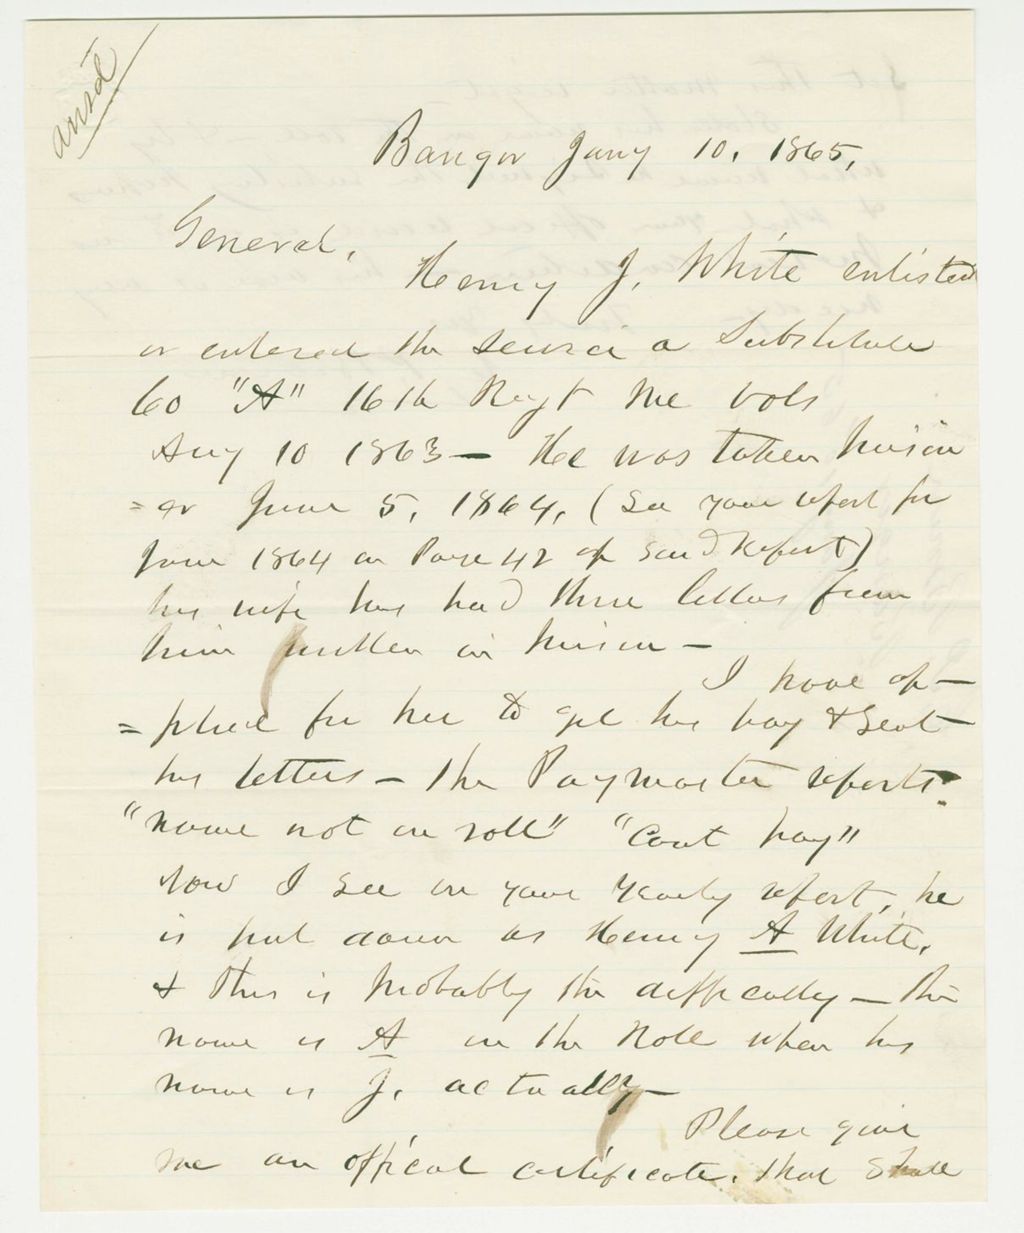 ansd
Bangor Jany 10, 1865,
General,
Henry J. White enlisted
or entered the service a Substitute
Co "A" 16th Regt Me Vols
Aug 10 1863 — He was taken prison
=er June 5, 1864, (See your report for
June 1864 on Page 42 of said Report)
his wife has had three letters from
him written in prison —
I have ap—
=plied for her to get his pay & sent
his letters — the Paymaster reports
"name not on roll" "Cant pay"
Now I see in your Yearly report, he
is put down as Henry A White,
& this is probably the difficulty — the
name is A on the Roll when his
name is J. actually —
Please give
me an official certificate, that shall